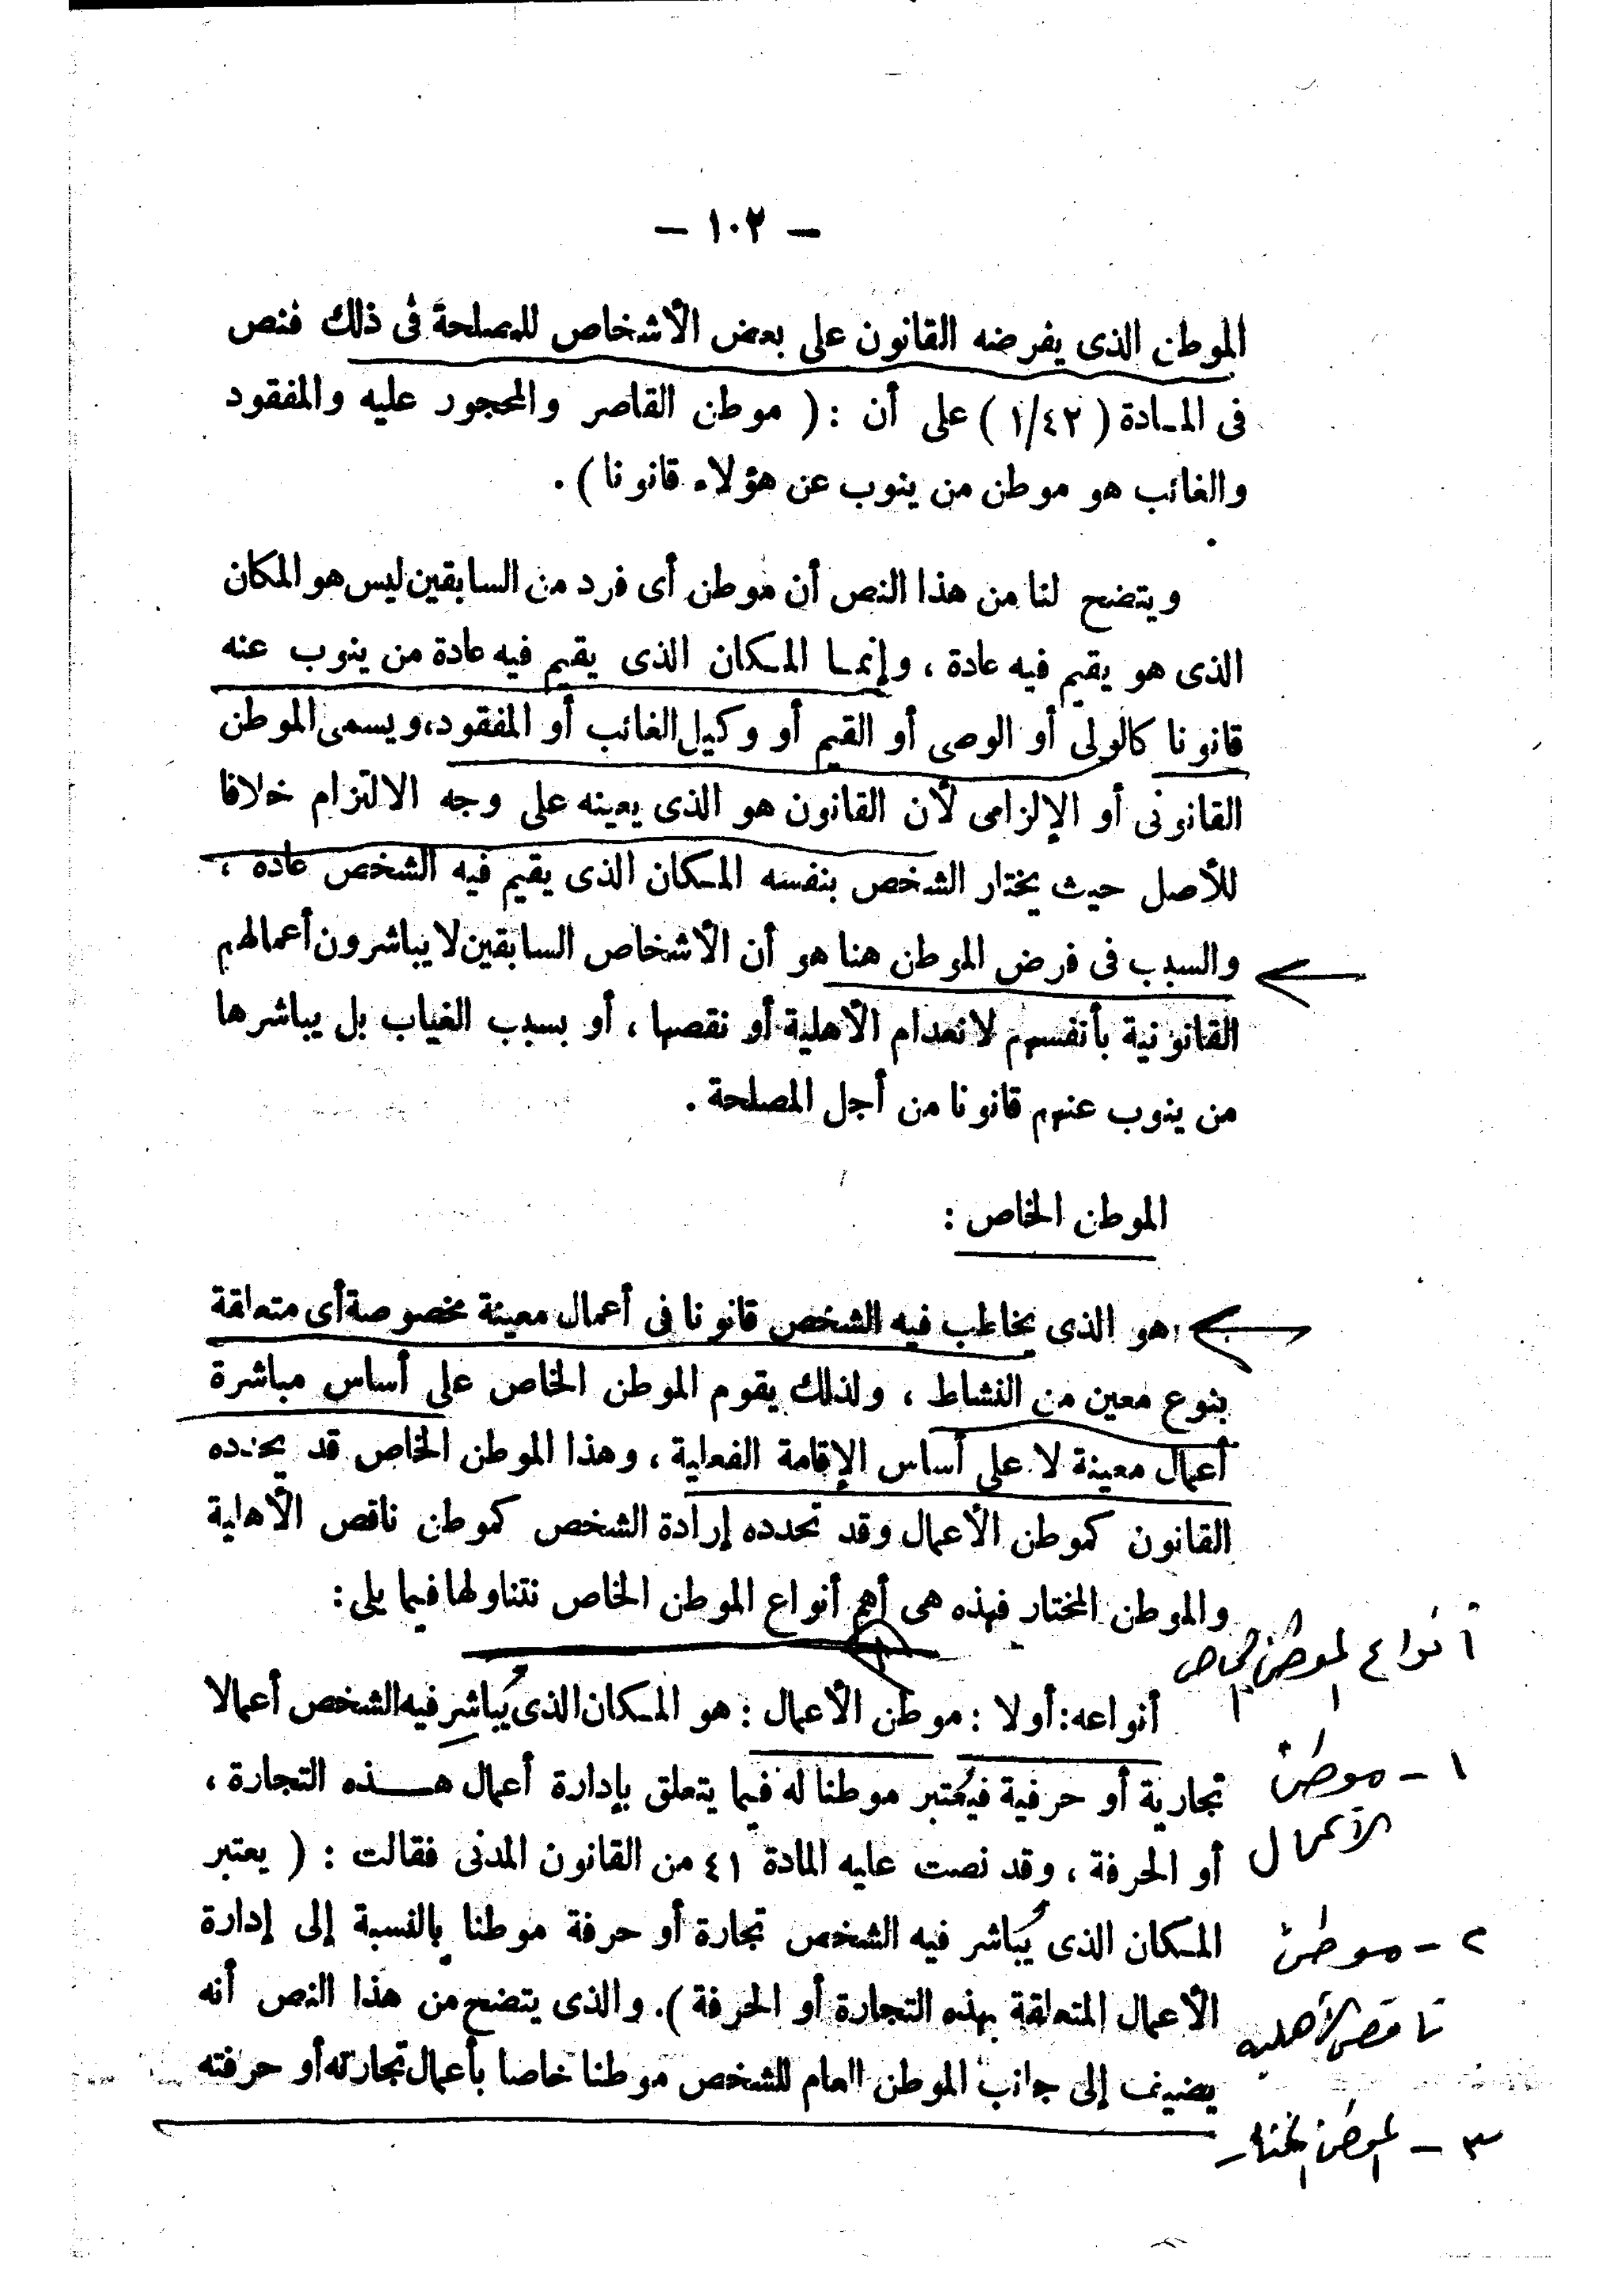 — ١٠٢ —
الموطن الذى يفرضه القانون على بعض الأشخاص للمصلحة فى ذلك فنص
فى المـادة ( ١/٤٢ ) على أن : ( موطن القاصر والمحجور عليه والمفقود
والغائب هو موطن من ينوب عن هؤلاء قانونا ) .
ويتضح لنا من هذا النص أن موطن أى فرد من السابقين ليس هو المكان
الذى هو يقيم فيه عادة ، وإنمـا المـكان الذى يقيم فيه عادة من ينوب عنه
قانونا كالولى أو الوصى أو القيم أو وكيل الغائب أو المفقود، ويسمى الموطن
القانونى أو الإلزامى لأن القانون هو الذى يعينه على وجه الالتزام خلافا
للأصل حيث يختار الشخص بنفسه المـكان الذى يقيم فيه الشخص عادة ،
والسبب فى فرض الموطن هنا هو أن الأشخاص السابقين لا يباشرون أعمالهم
القانونية بأنفسهم لانعدام الأهلية أو نقصها ، أو بسبب الغياب بل يباشرها
من ينوب عنهم قانونا من أجل المصلحة .
الموطن الخاص :
هو الذى يخاطب فيه الشخص قانونا فى أعمال معينة مخصوصة أى متعلقة
بنوع معين من النشاط ، ولذلك يقوم الموطن الخاص على أساس مباشرة
أعمال معينة لا على أساس الإقامة الفعلية ، وهذا الموطن الخاص قد يحدده
القانون كموطن الأعمال وقد تحدده إرادة الشخص كموطن ناقص الأهلية
والموطن المختار فهذه هى أهم أنواع الموطن الخاص نتناولها فيما يلى :
أنواع الموطن الخاص
أنواعه : أولا : موطن الأعمال : هو المـكان الذى يُباشر فيه الشخص أعمالا
تجارية أو حرفية فيُعتبر موطنا له فيما يتعلق بإدارة أعمال هـــذه التجارة ،
١ - موطن
أو الحرفة ، وقد نصت عليه المادة ٤١ من القانون المدنى فقالت : ( يعتبر
الأعمال
المـكان الذى يُباشر فيه الشخص تجارة أو حرفة موطنا بالنسبة إلى إدارة
٢ - موطن
الأعمال المتعلقة بهذه التجارة أو الحرفة ) . والذى يتضح من هذا النص أنه
ناقص الأهلية
يضيف إلى جانب الموطن العام للشخص موطنا خاصا بأعمال تجارته أو حرفته
٣ - الموطن المختار